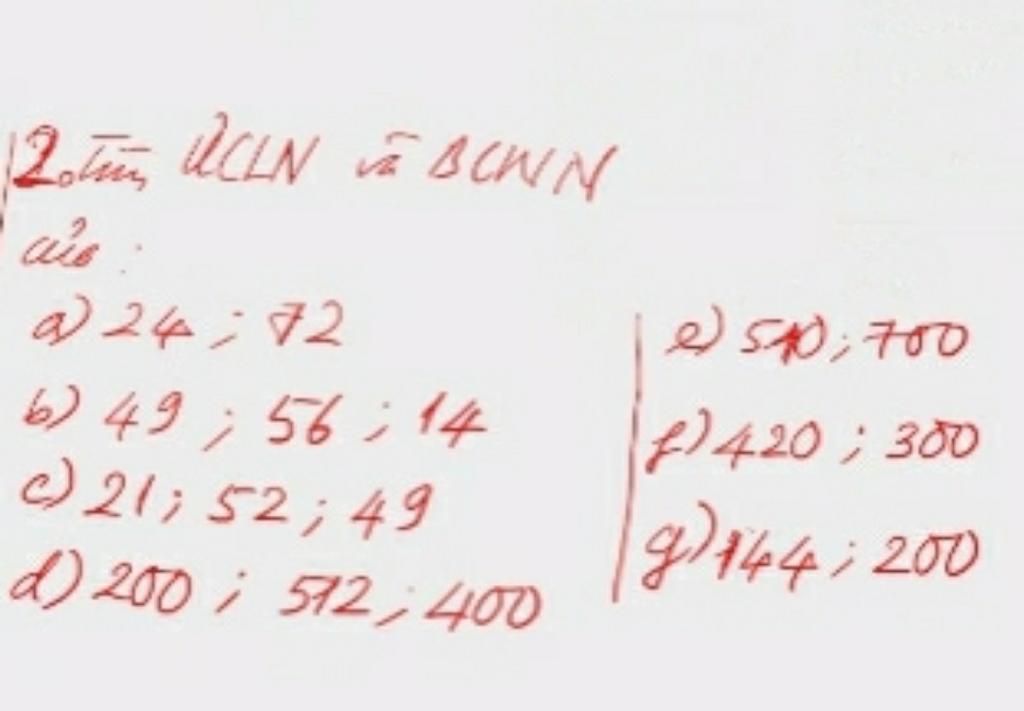 2. Tìm ƯCLN và BCNN
của:
a) 24 ; 72
b) 49 ; 56 ; 14
c) 21 ; 52 ; 49
d) 200 ; 512 ; 400
e) 510 ; 700
f) 420 ; 300
g) 144 ; 200